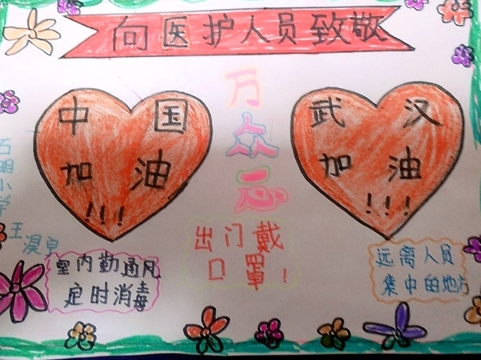 向医护人员致敬
中国
加油
!!!
万众一心
武汉
加油
!!!
明小学
出门戴
口罩!
室内勤通风
定时消毒
远离人员
集中的地方